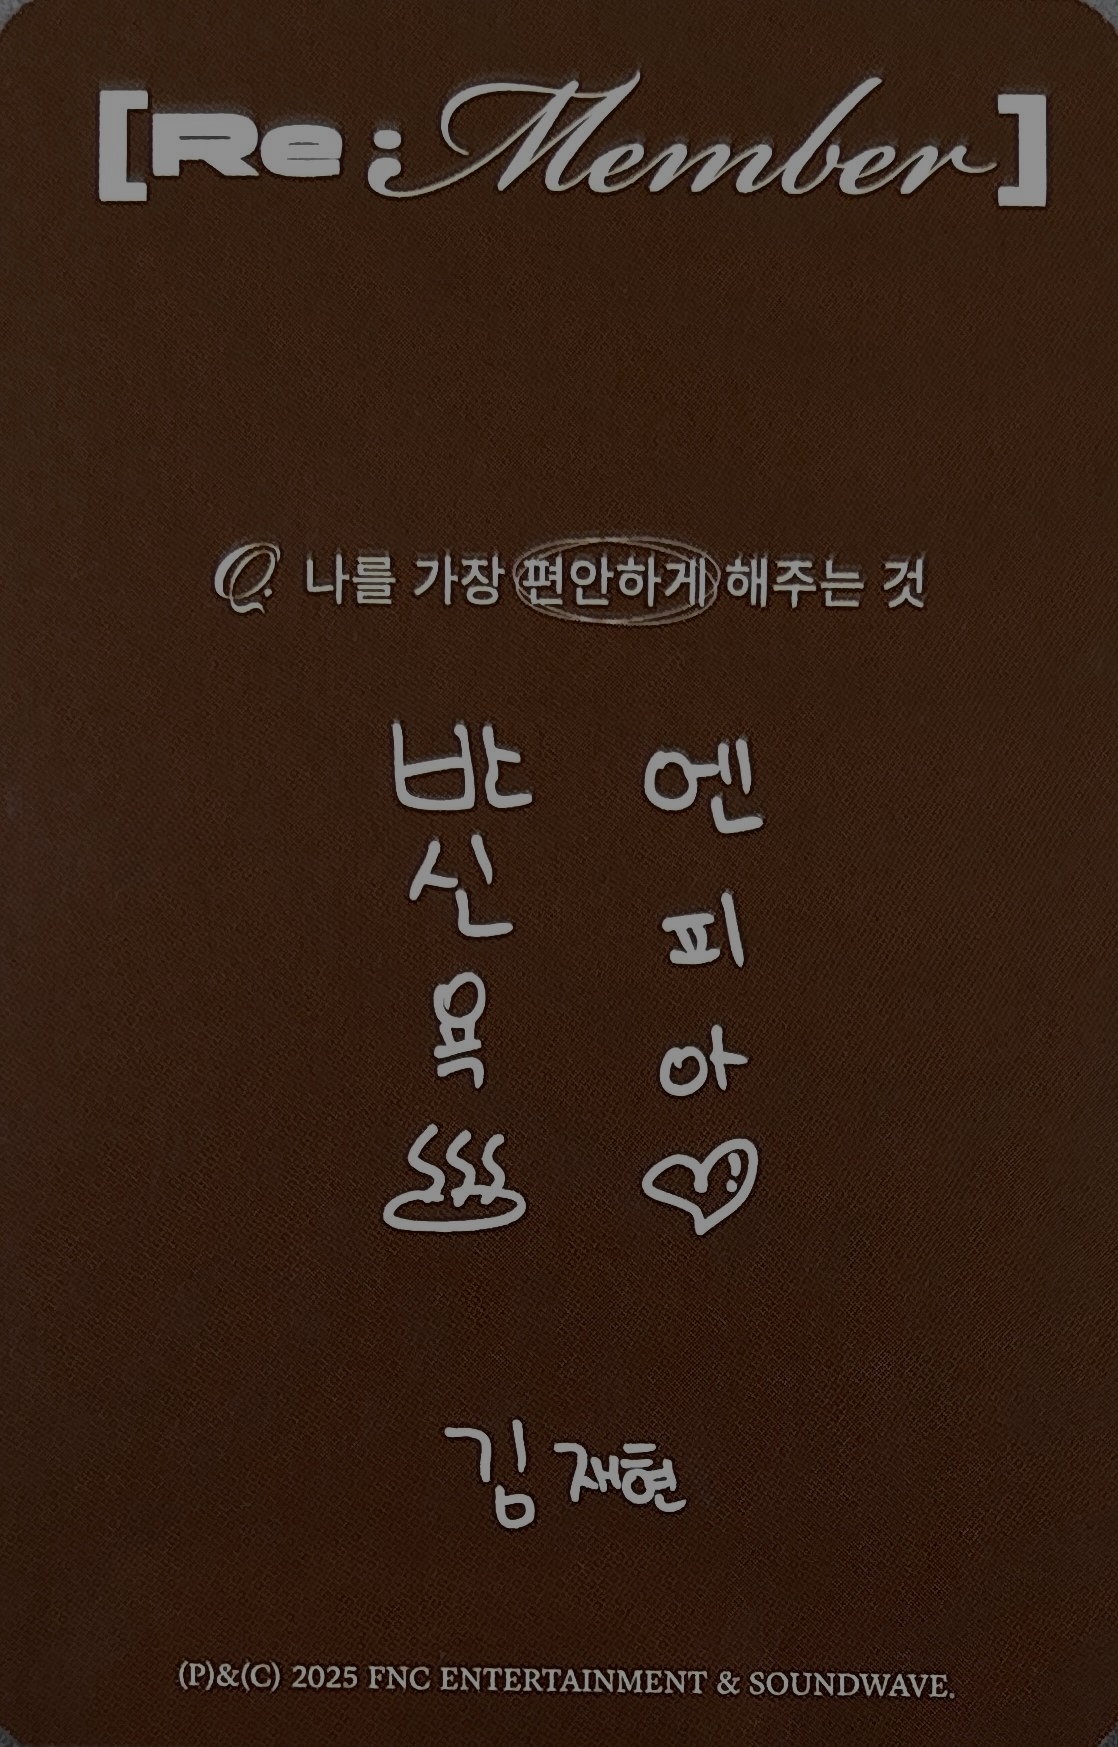 [Re:Member]
Q. 나를 가장 편안하게 해주는 것
반신욕
엔피아
김재현
(P)&(C) 2025 FNC ENTERTAINMENT & SOUNDWAVE.